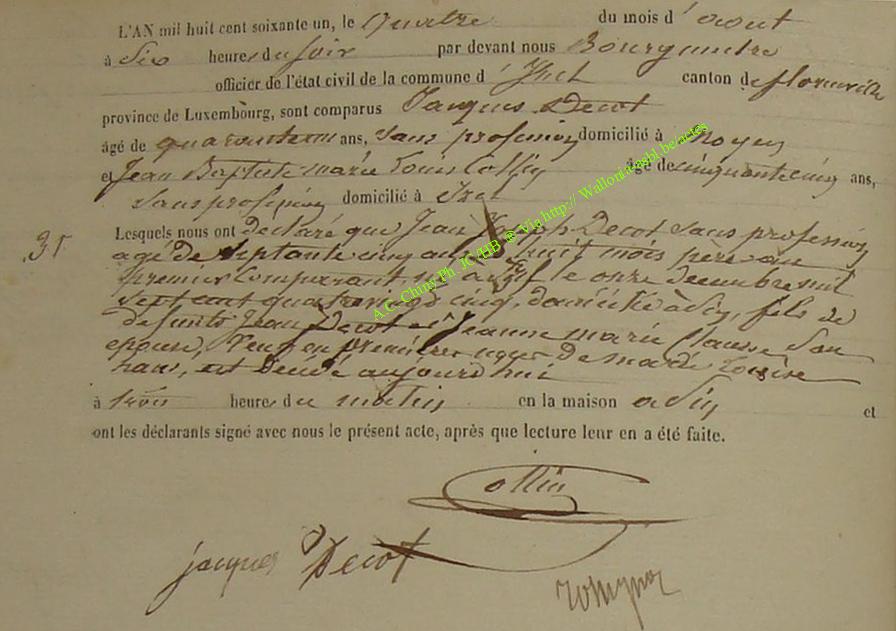 L'AN mil huit cent soixante un, le quatre du mois d' aout
à Six heures du soir par devant nous Bourgmestre
officier de l'état civil de la commune d' Izel canton de florenville
province de Luxembourg, sont comparus Jacques Decot
âgé de quarante ans, sans profession domicilié à Moyen
et Jean Baptiste marie Louis Collin âgé de cinquante cinq ans,
sans profession domicilié à Izel
35 Lesquels nous ont declaré que Jean Joseph Decot sans profession
agé de septante cinq ans huit mois père au
premier Comparant, né à le onze decembre mil
sept cent quatrevingt cinq, domicilié à , fils de
defunts Jean Decot et Jeanne marie son
epouse, Veuf en premières noces de marie Louise
hans, est decedé aujourd'hui
à trois heures du matin en la maison a et
ont les déclarants signé avec nous le présent acte, après que lecture leur en a été faite.
Collin
jacques Decot
A.C. Chiny Ph JC HB @ Via http:// Wallonia asbl.be/actes